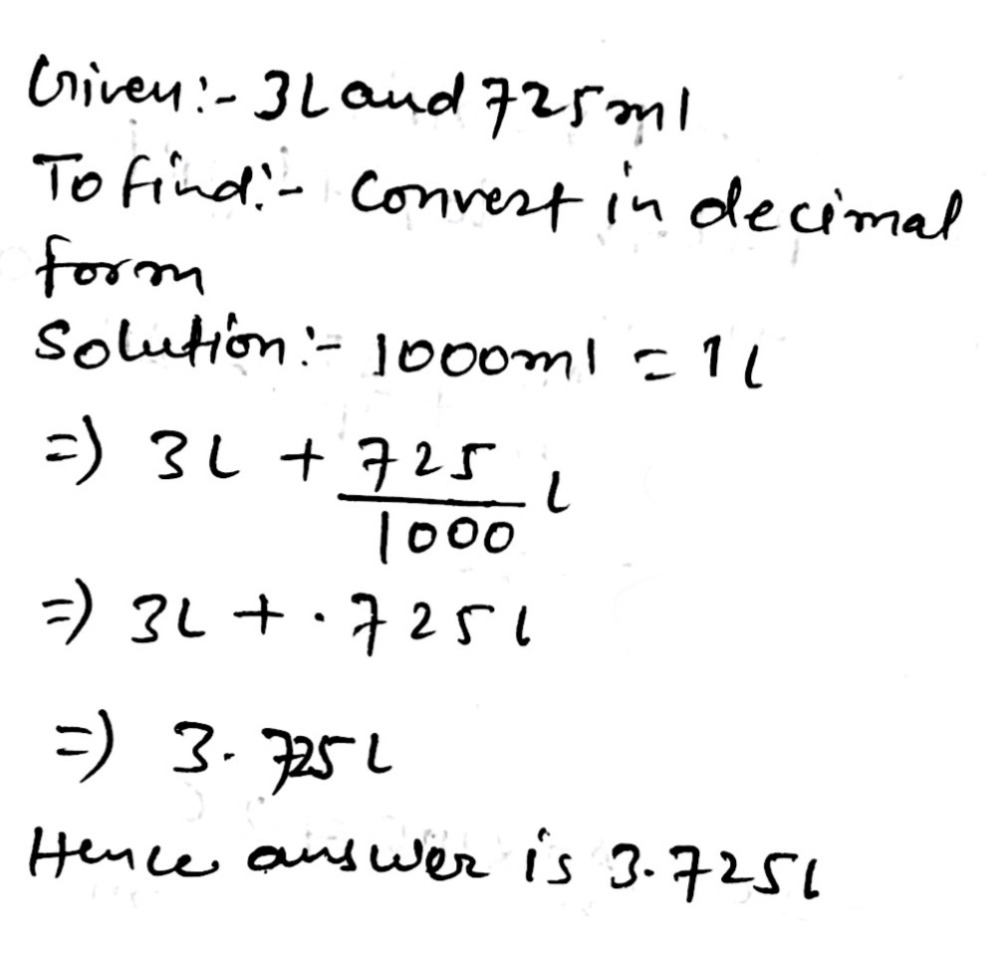 Given:- 3L and 725ml
To find:- Convert in decimal
form
Solution:- 1000ml = 1l
=) 3L + 725/1000 l
=) 3L + .725l
=) 3.725L
Hence answer is 3.725l